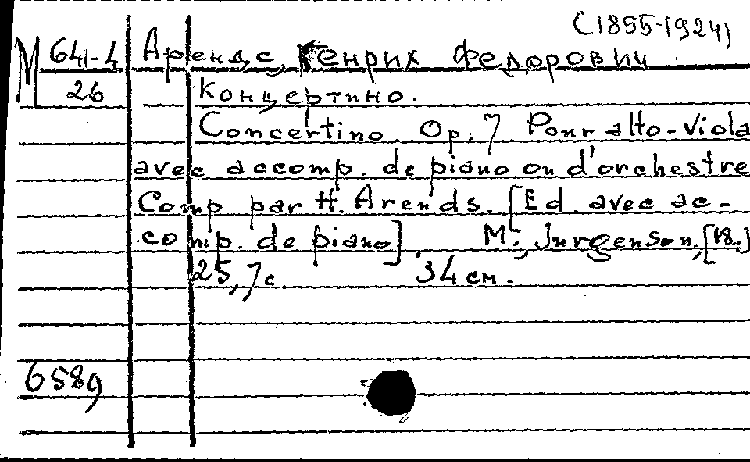 (1855-1924)
М 641-4 Арендс, Генрих Федорович
26 Концертино.
Concertino Op. 7 Pour alto-viola
avec accomp. de piano ou d'orchestre
Comp par H. Arends. [Ed. avec ac-
comp. de piano]. М., Jurgenson, [18.]
25, 7 с. 34 см.
6589